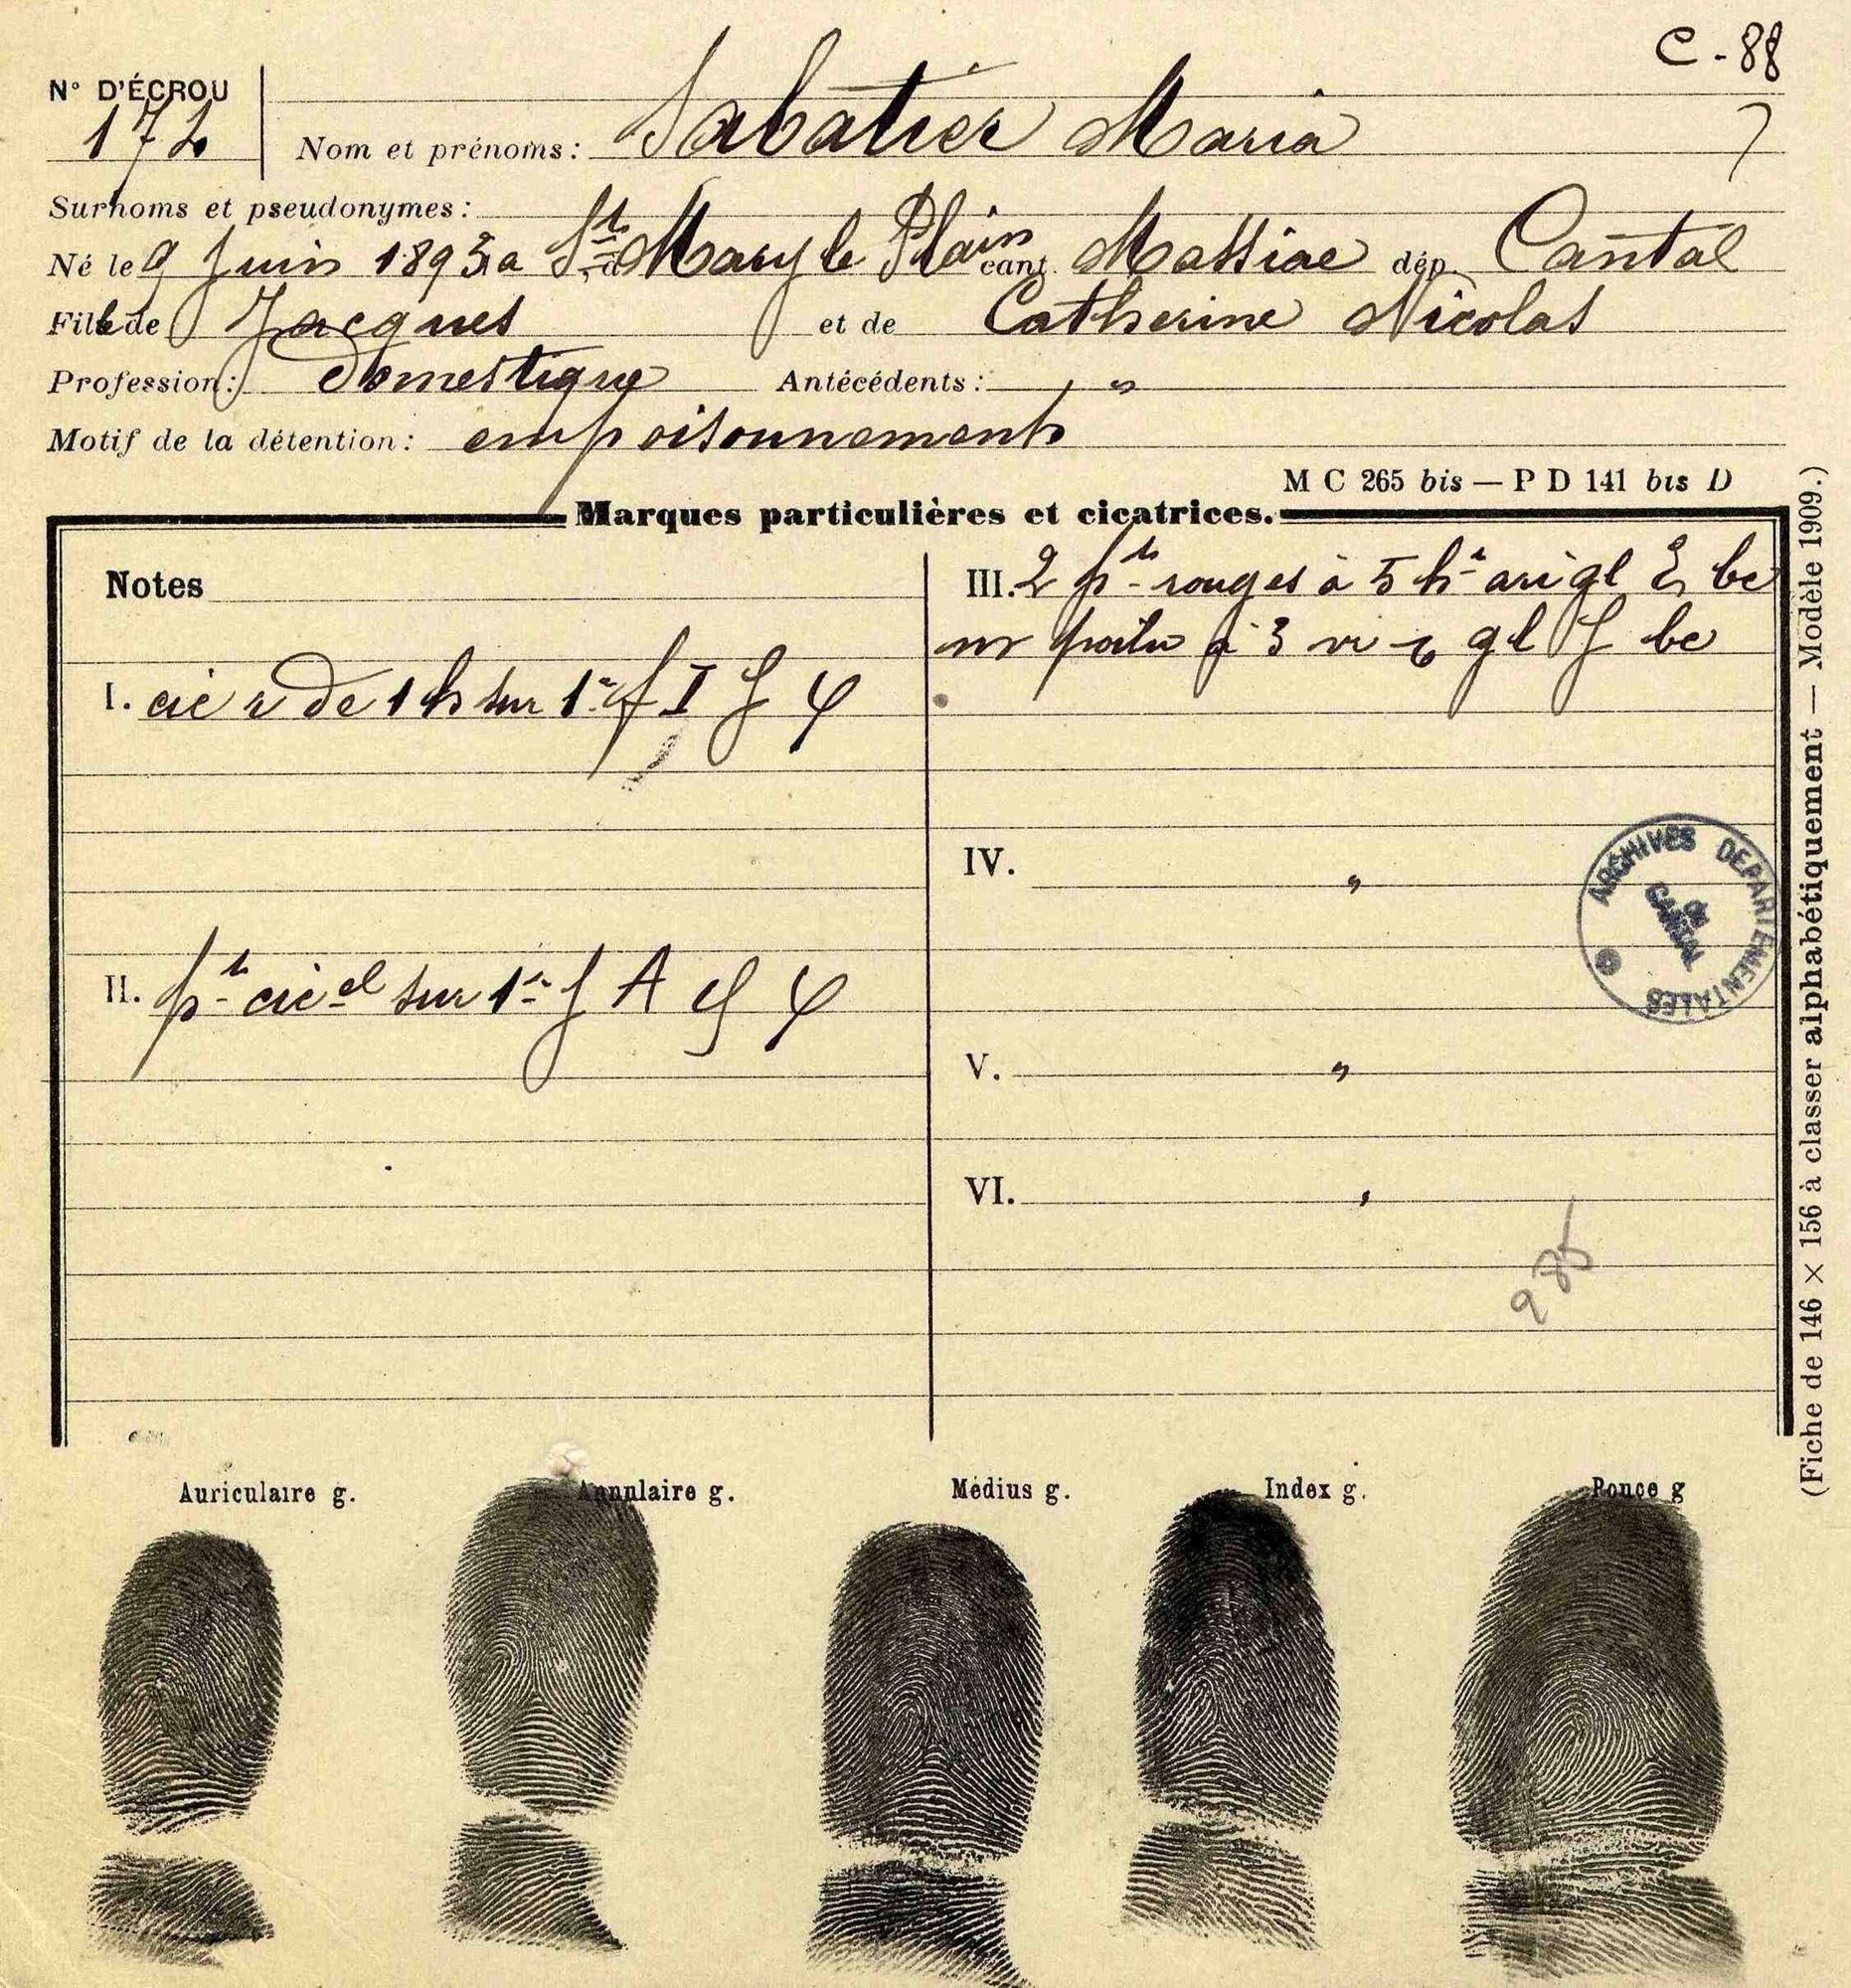 C - 88
N° D'ÉCROU
172
Nom et prénoms : Sabatier Maria
Surnoms et pseudonymes :
Né le 9 Juin 1893 à St Mary le Plain cant. Massiac dép. Cantal
Fille de Jacques et de Catherine Nicolas
Profession : Domestique Antécédents : "
Motif de la détention : empoisonnement
M C 265 bis — P D 141 bis D
Marques particulières et cicatrices.
Notes
I. cic r de 1 h sur 1re f I g
II. pt cic el sur 1re f A g
III. 2 pts rouges à 5 hr ari gl & bc
nv poilu à 3 gl f bc
IV. "
V. "
VI. "
ARCHIVES DÉPARTEMENTALES
CANTAL
(Fiche de 146 × 156 à classer alphabétiquement — Modèle 1909.)
Auriculaire g. Annulaire g. Médius g. Index g. Pouce g